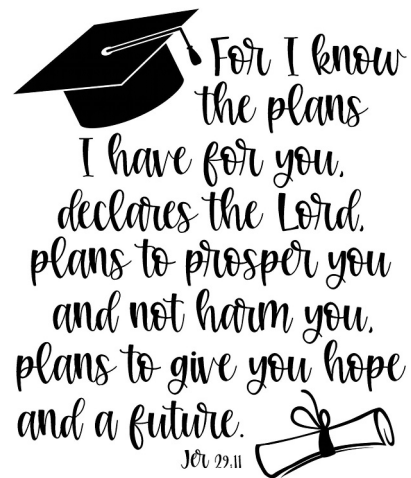 For I know
the plans
I have for you,
declares the Lord,
plans to prosper you
and not harm you,
plans to give you hope
and a future.
Jer 29:11